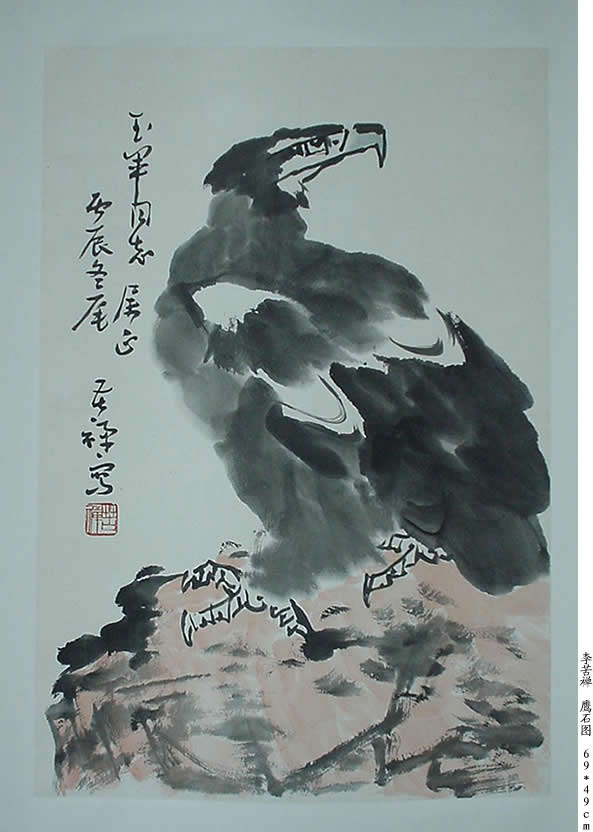 玉 同志 属正
丙辰冬尾 苦禅写
李苦禅 鹰石图 69*49cm